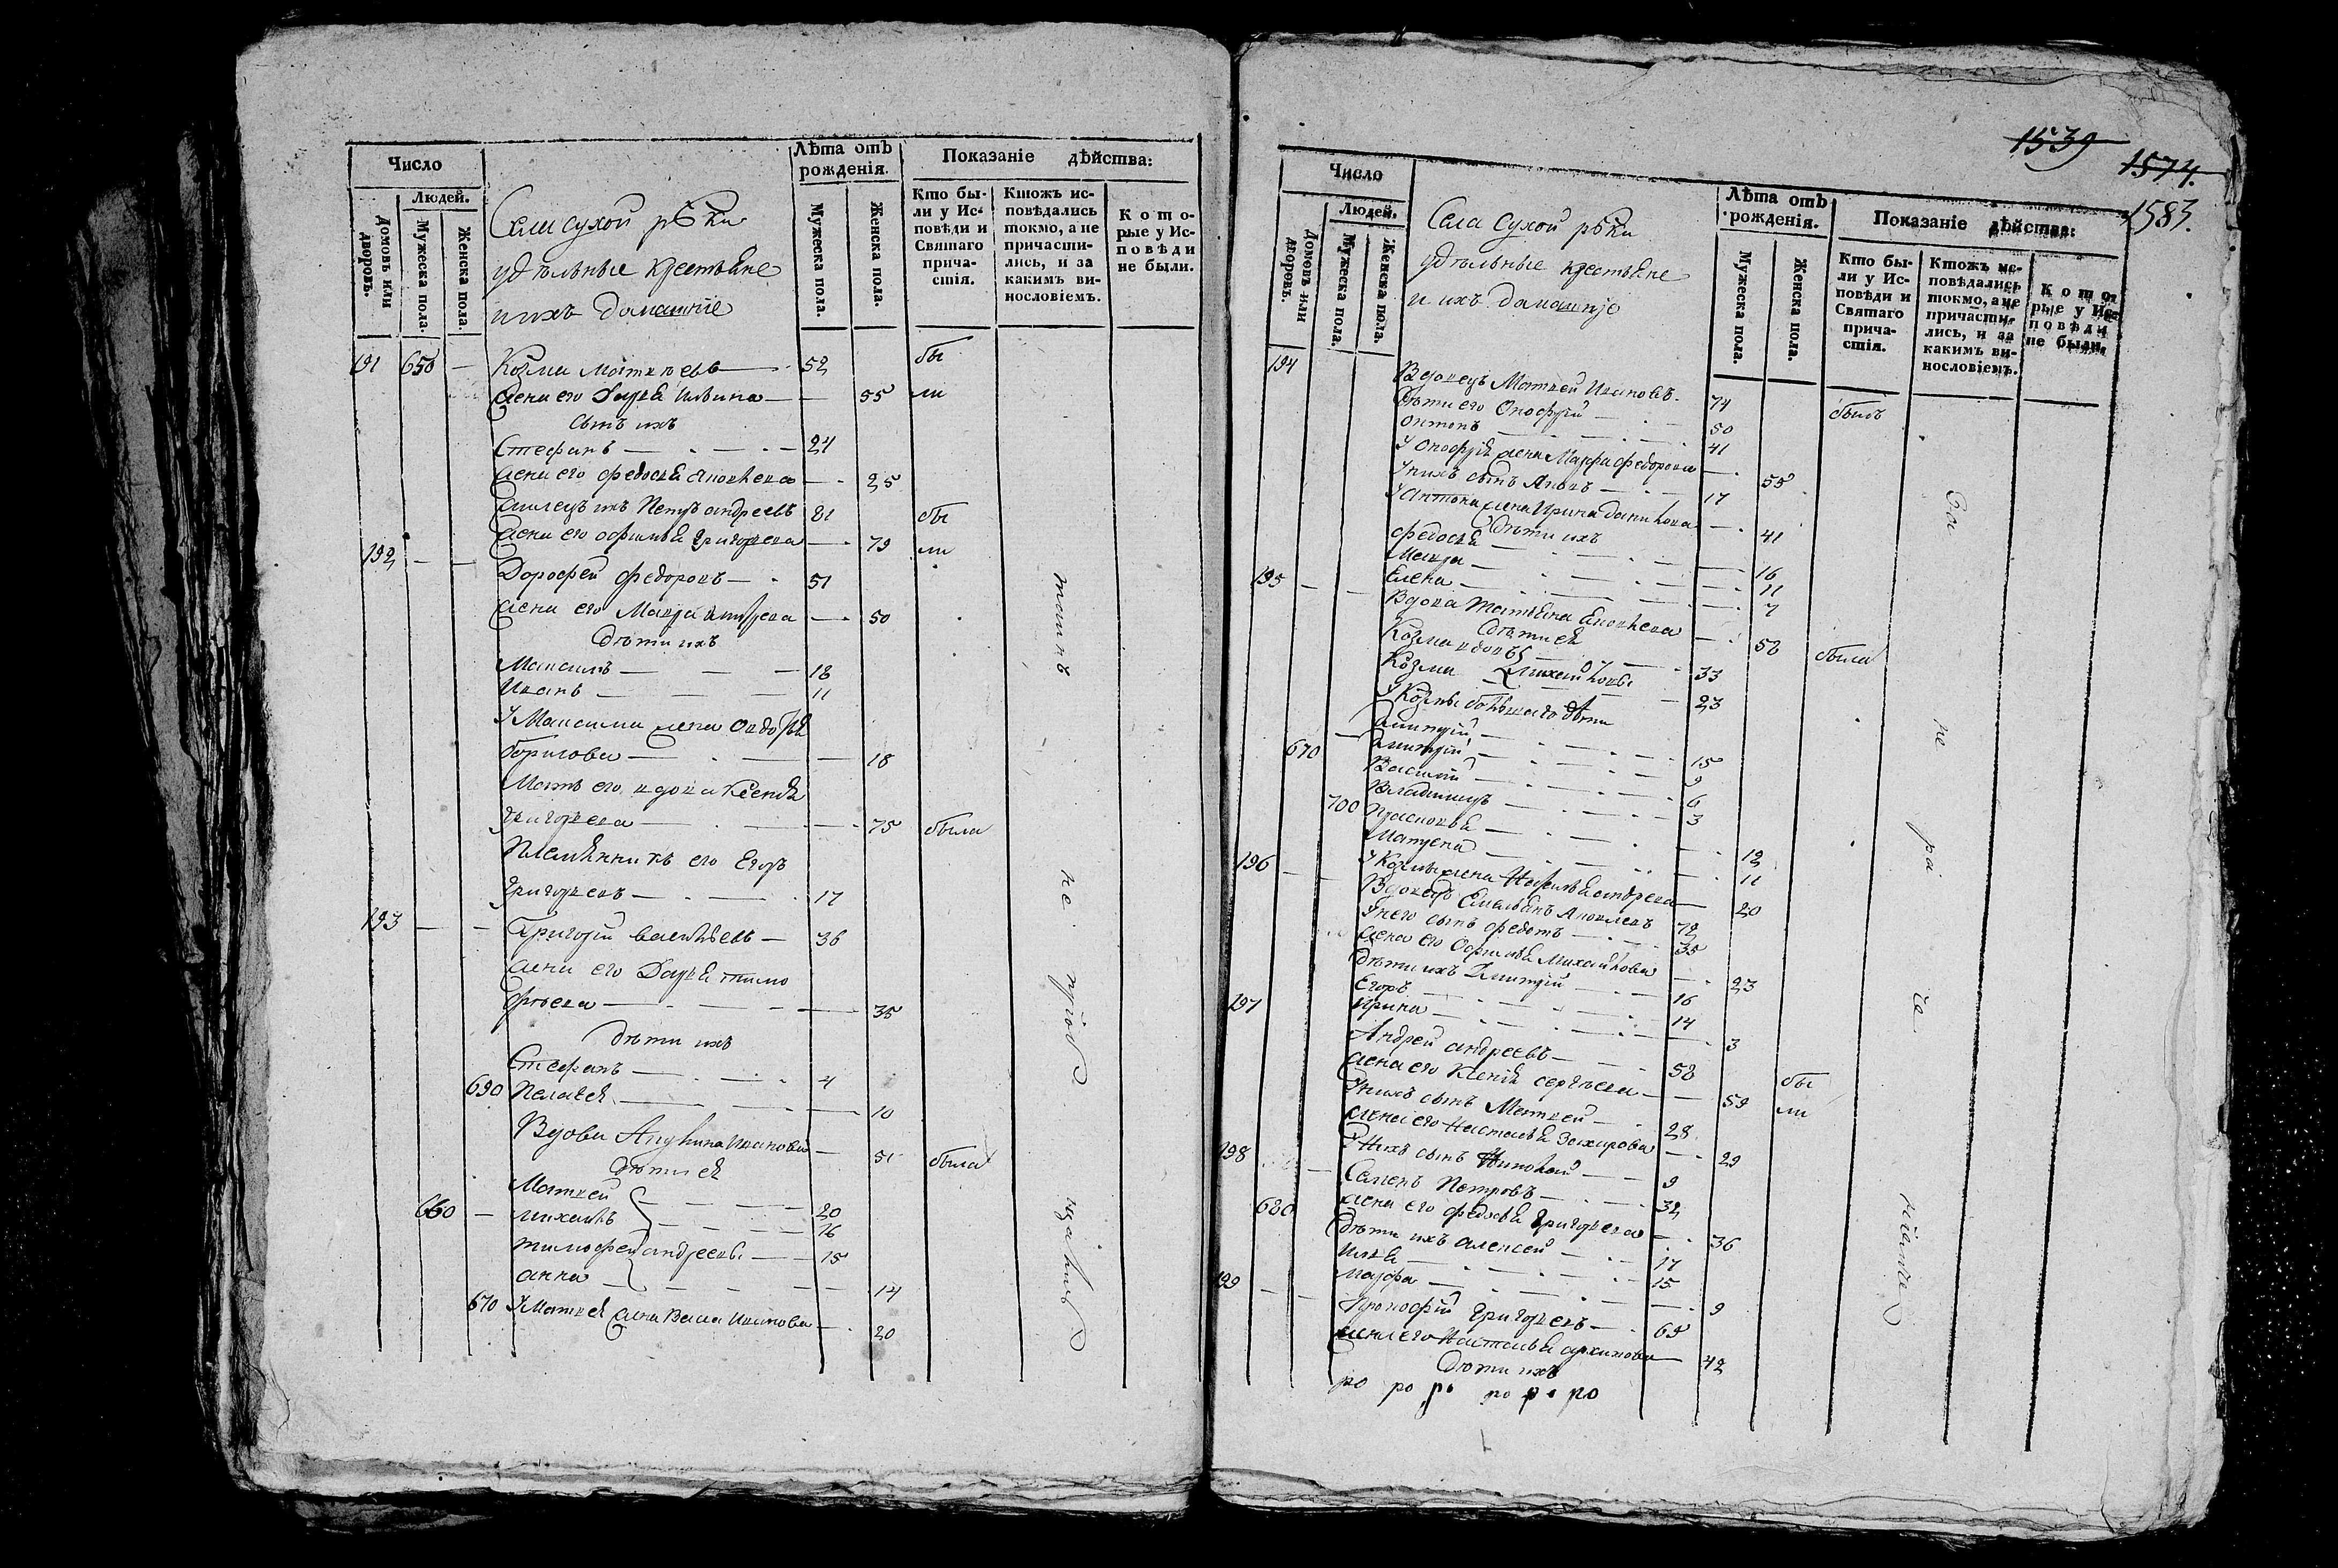 Число
Людей.
Домовъ или дворовъ.
Мужеска пола.
Женска пола.
Села Сухой рѣки
удѣльные крестьяне
и ихъ домашніе
Лѣта отъ рожденія.
Мужеска пола.
Женска пола.
Показаніе дѣйства:
Кто были у Исповѣди и Святаго причастія.
Ктожъ исповѣдались токмо, а не причастились, и за какимъ винословіемъ.
Которые у Исповѣди не были.
191 650 — Козма Матвѣевъ — 52 бы
жена его Дарья Ильина — — 55 ли
сынъ ихъ
Стефанъ — 24
жена его Федосья Яковлева — 25
Петръ Андреевъ 81 бы
жена его Офимья Григорьева — 79 ли
192 — — Дорофей Федоровъ — 51
жена его Мавра — 50
дѣти ихъ
Максимъ — 18
Иванъ — 11
У Максима жена Овдотья
Борисова — 18
Мать его вдова Ксенія
Григорьева — 75 была
Племянникъ его Егоръ
Григорьевъ — 17
193 — — Григорій Васильевъ — 36
жена его Дарья Тимо
фѣева — 35
дѣти ихъ
Стефанъ — 4
690 Пелагея — 10
Вдова Акулина Иванова — 51 была
дѣти ея
Матвей — 20
660 — Михаилъ — 16
Тимофей Андреевы — 15
Анна — 14
670 У Матвея жена Васса Иванова — 20
1539
1574.
1583.
Число
Людей.
Домовъ или дворовъ.
Мужеска пола.
Женска пола.
Села Сухой рѣки
удѣльные крестьяне
и ихъ домашніе
Лѣта отъ рожденія.
Мужеска пола.
Женска пола.
Показаніе дѣйства:
Кто были у Исповѣди и Святаго причастія.
Ктожъ исповѣдались токмо, а не причастились, и за какимъ винословіемъ.
Которые у Исповѣди не были.
194 Вдовецъ Матвей Ивановъ 74 былъ
Дѣти его Онофрій — 50
Антонъ — 41
У Онофрія жена Марфа Федорова — 55
У нихъ сынъ Яковъ — 17
У Антона жена Ирина Данилова — 41
Дѣти ихъ
Федосья — 16
Мавра — 11
Елена — 7
195 — — Вдова Татьяна Яковлева — 58 была
Дѣти ея
Козма вдовъ — 33
Козма Михайловы — 23
У Козмы большаго дѣти
Димитрій — 15
670 Димитрій — 9
Василій — 6
Владимиръ — 3
700 Прасковья — 12
Матрена — 11
У Козмы жена Андреева — 20
196 — — Вдовецъ Емельянъ Яковлевъ 72
У него сынъ Федотъ — 35
жена его Офимья Михайлова — 23
Дѣти ихъ Димитрій — 16
Егоръ — 14
Ирина — 3
197 Андрей Андреевъ — 58 бы
жена его Ксенія Сергѣева — 59 ли
У нихъ сынъ Матвей — 28
жена его Настасья Захарова — 29
У нихъ сынъ Николай — 9
198 Семенъ Петровъ — 32
680 жена его Федосья Григорьева — 36
Дѣти ихъ Алексей — 17
Илья — 15
Марфа — 9
199 — — Прокофій Григорьевъ — 65
жена его Настасья Архипова — 42
Дѣти ихъ
ро ро ро ро ро ро